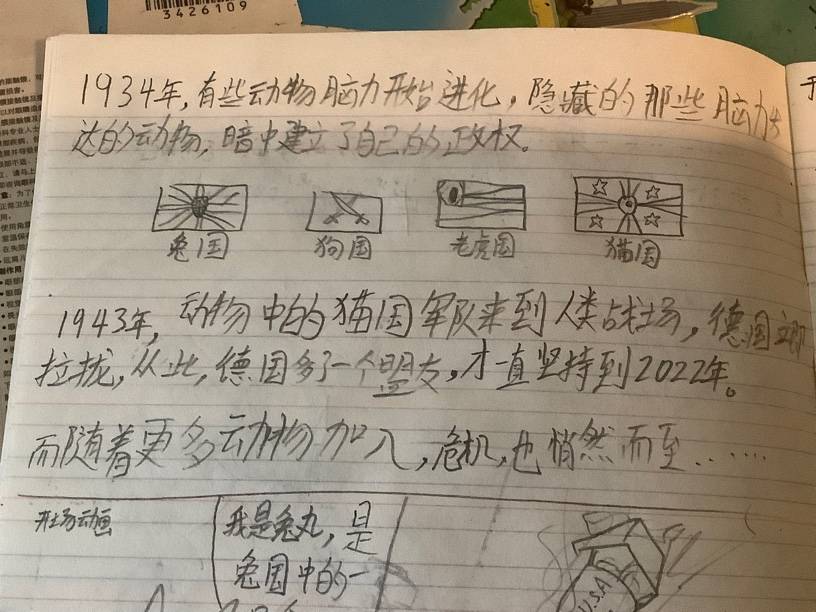 3426109
1934年,有些动物脑力开始进化,隐藏的那些脑力发
达的动物,暗中建立了自己的政权。
兔国 狗国 老虎国 猫国
1943年,动物中的猫国军队来到人类战场,德国立即
拉拢,从此,德国多了一个盟友,才一直坚持到2022年。
而随着更多动物加入,危机,也悄然而至……
开场动画
我是兔丸,是
兔国中的一
U.S.A